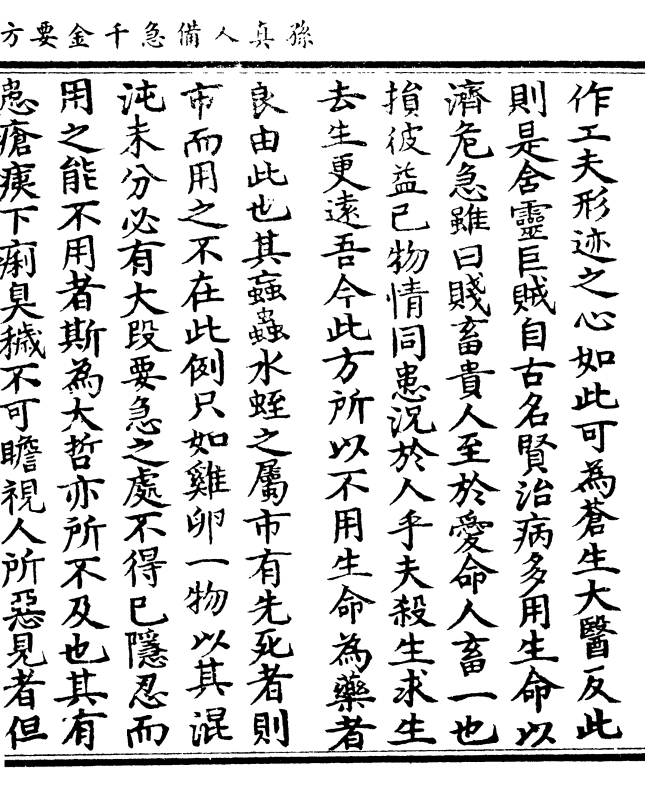 孫真人備急千金要方
作工夫形迹之心如此可為蒼生大醫反此
則是含靈巨賊自古名賢治病多用生命以
濟危急雖曰賤畜貴人至於愛命人畜一也
損彼益己物情同患況於人乎夫殺生求生
去生更遠吾今此方所以不用生命為藥者
良由此也其蝱蟲水蛭之屬市有先死者則
市而用之不在此例只如雞卵一物以其混
沌未分必有大段要急之處不得已隱忍而
用之能不用者斯為大哲亦所不及也其有
患瘡痍下痢臭穢不可瞻視人所惡見者但